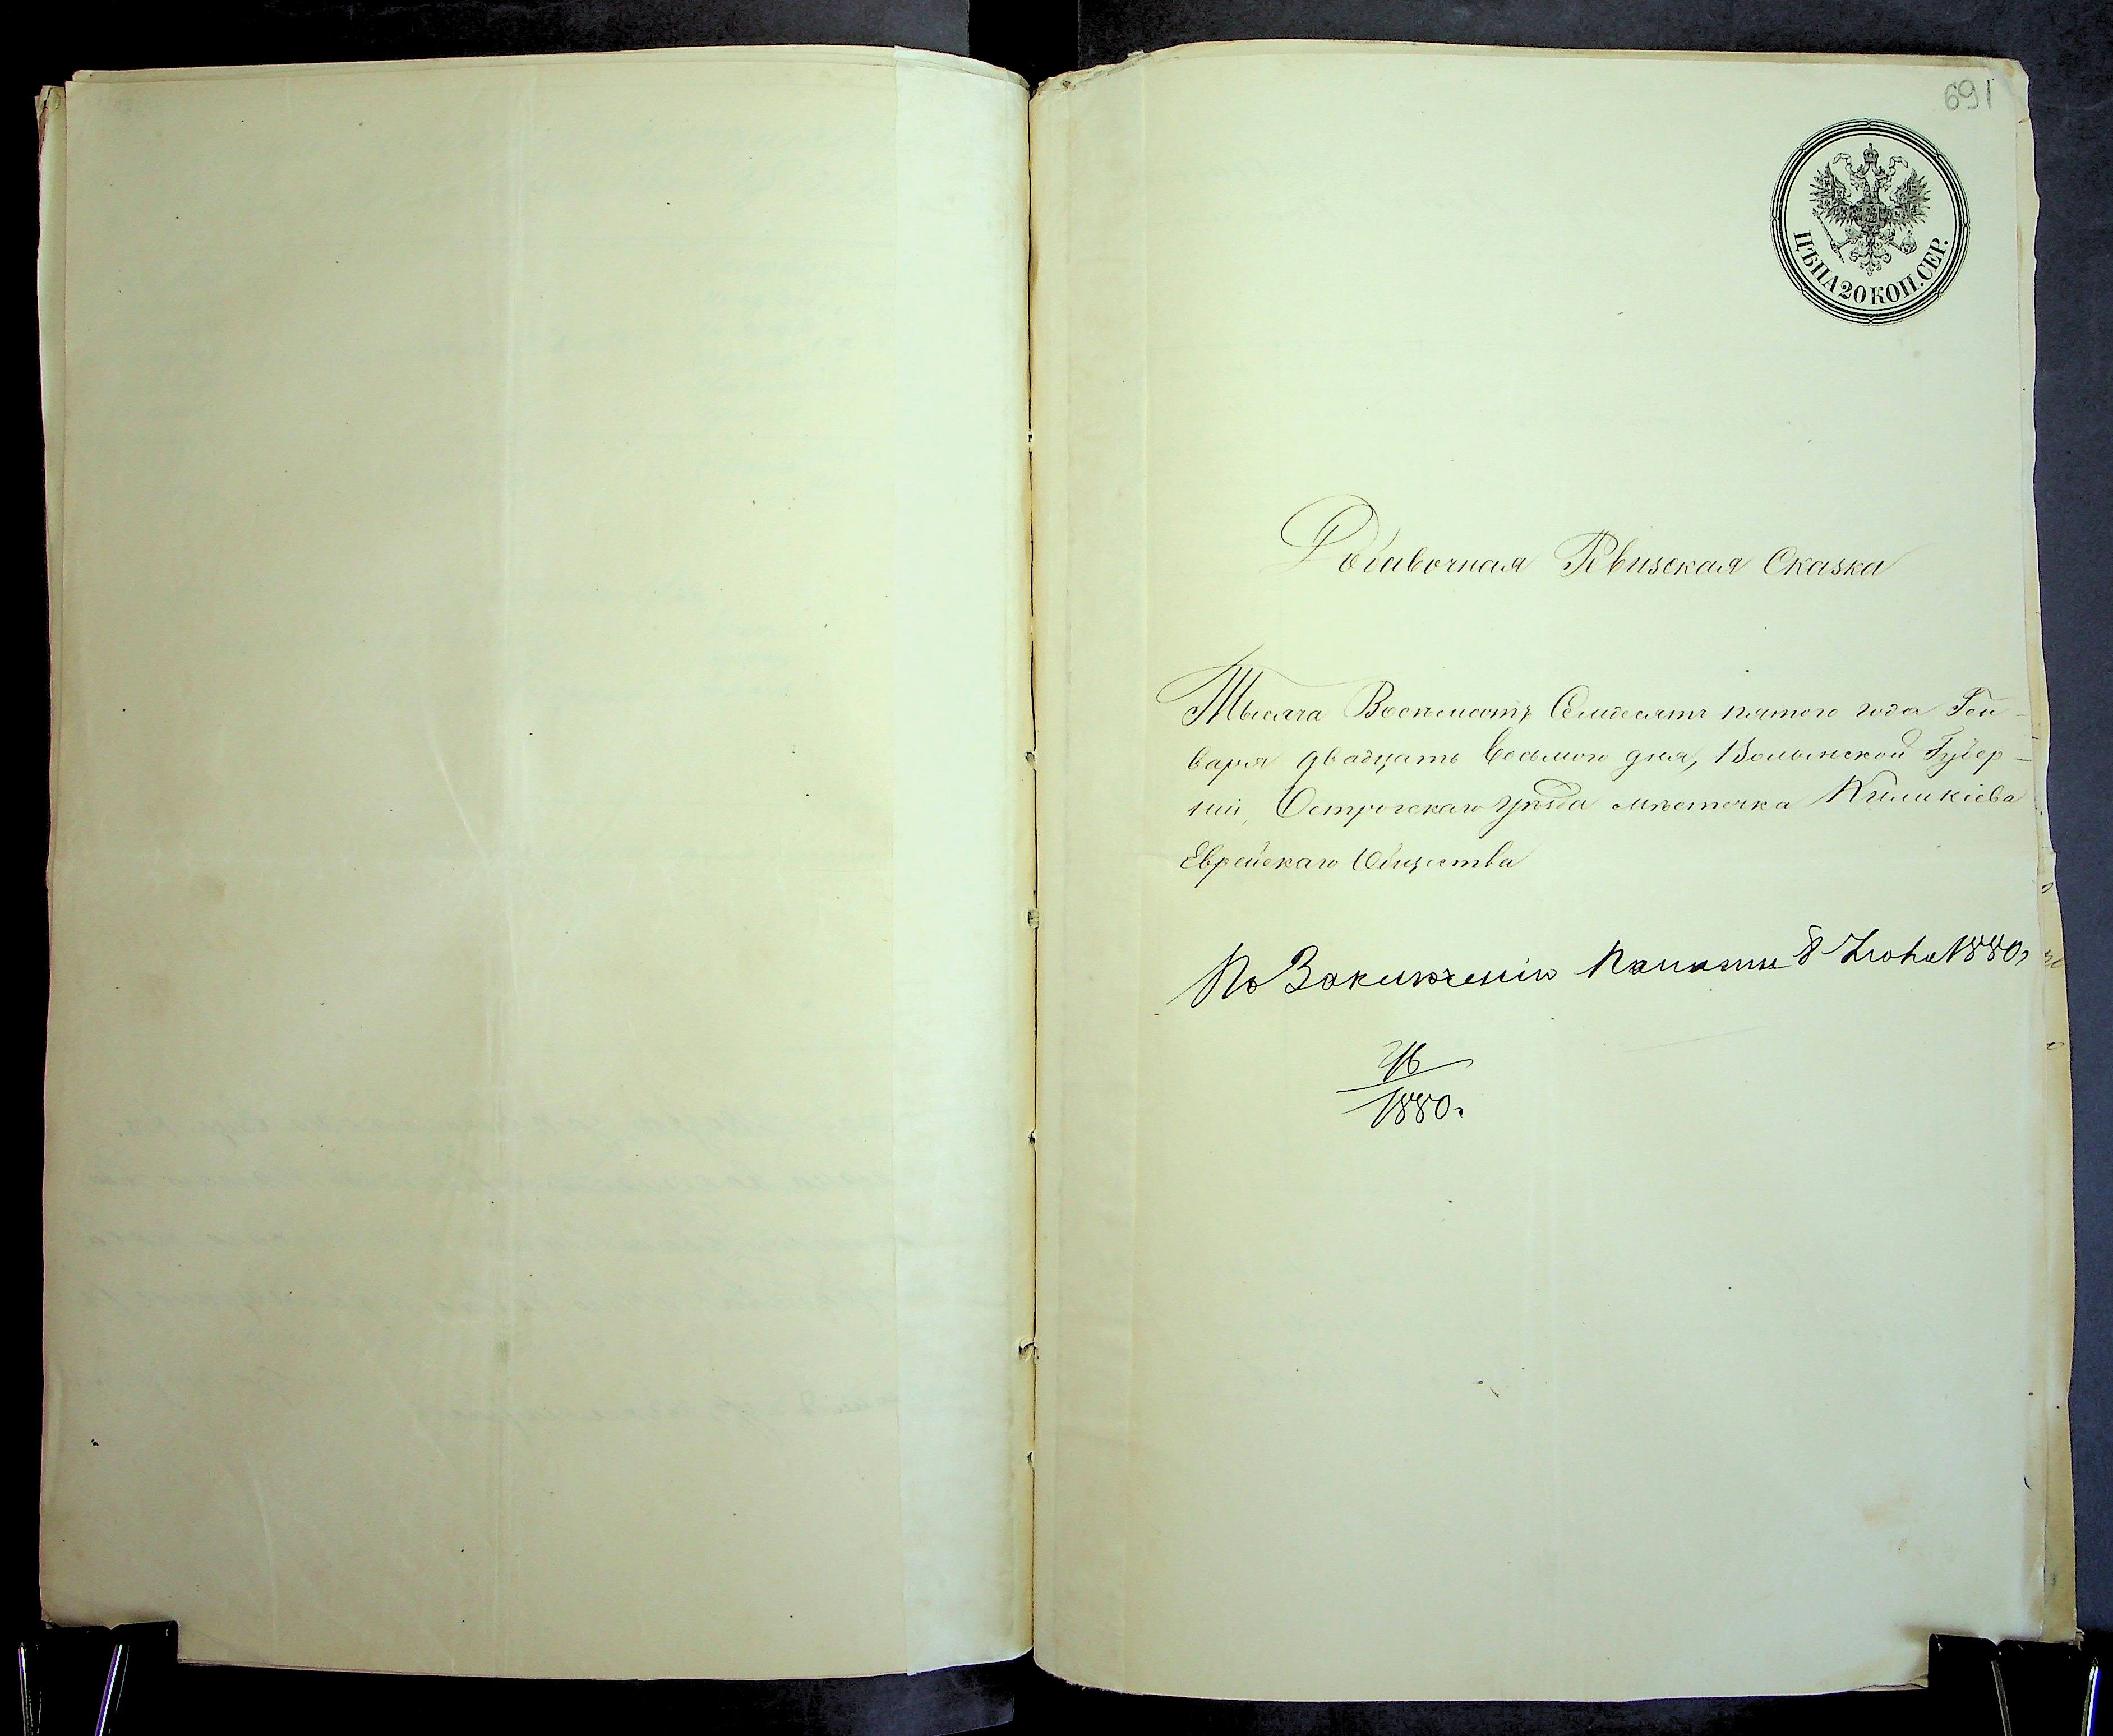 691
ЦѢНА 20 КОП. СЕР.
Добавочная Ревизская Сказка
Тысяча Восемьсотъ Семдесятъ пятого года Ген-
варя двадцать восьмого дня, Волынской Губер-
ніи, Острогскаго Уѣзда мѣстечка Киликіева
Еврейскаго Общества
По Заключенію Палаты 8 1880.
1880.